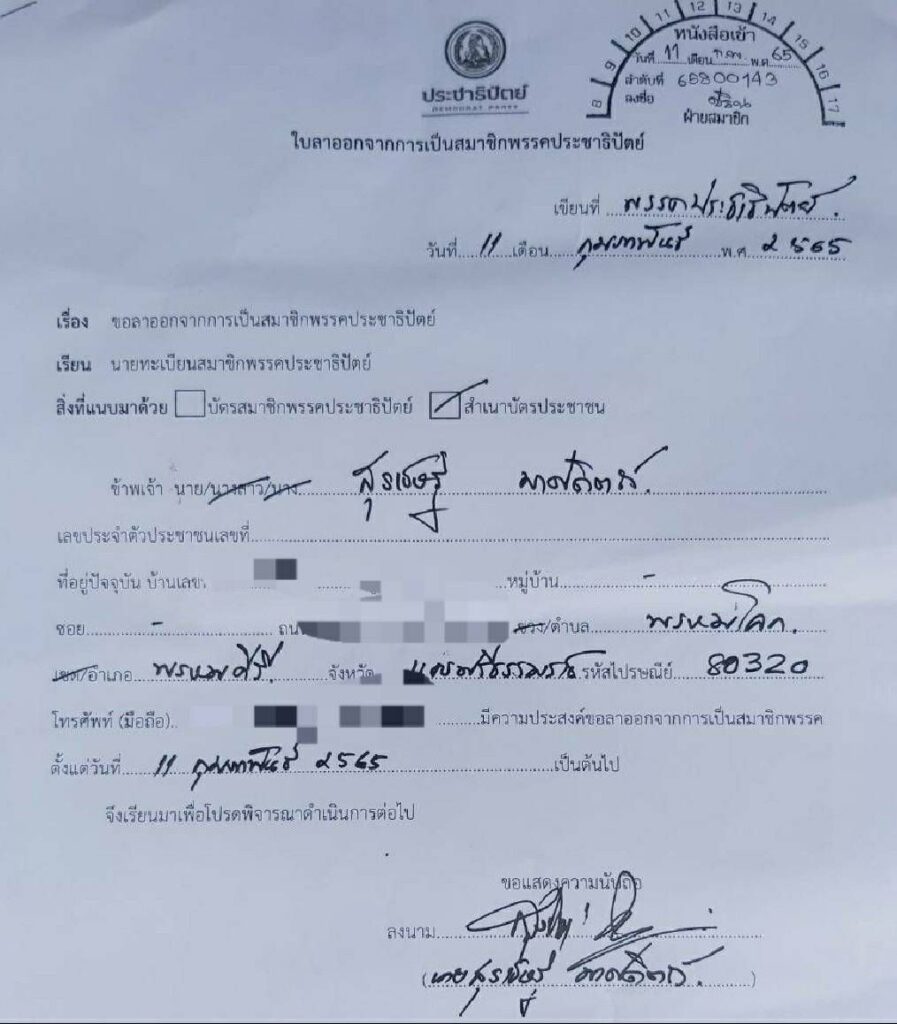 ประชาธิปัตย์
DEMOCRAT PARTY
8 9 10 11 12 13 14 15 16 17
หนังสือเข้า
วันที่ 11 เดือน ก.พ. พ.ศ. 65
ลำดับที่ 65300143
ลงชื่อ
ฝ่ายสมาชิก
ใบลาออกจากการเป็นสมาชิกพรรคประชาธิปัตย์
เขียนที่ พรรคประชาธิปัตย์.
วันที่ 11 เดือน กุมภาพันธ์ พ.ศ 2565
เรื่อง ขอลาออกจากการเป็นสมาชิกพรรคประชาธิปัตย์
เรียน นายทะเบียนสมาชิกพรรคประชาธิปัตย์
สิ่งที่แนบมาด้วย บัตรสมาชิกพรรคประชาธิปัตย์ สำเนาบัตรประชาชน
ข้าพเจ้า นาย/นางสาว/นาง สุรเชษฐ์ มาศดิตถ์.
เลขประจำตัวประชาชนเลขที่
ที่อยู่ปัจจุบัน บ้านเลข หมู่บ้าน -
ซอย - ถน แขวง/ตำบล พรหมโลก.
เขต/อำเภอ พรหมคีรี จังหวัด นครศรีธรรมราช รหัสไปรษณีย์ 80320
โทรศัพท์ (มือถือ) มีความประสงค์ขอลาออกจากการเป็นสมาชิกพรรค
ตั้งแต่วันที่ 11 กุมภาพันธ์ 2565 เป็นต้นไป
จึงเรียนมาเพื่อโปรดพิจารณาดำเนินการต่อไป
ขอแสดงความนับถือ
ลงนาม
(นายสุรเชษฐ์ มาศดิตถ์.)